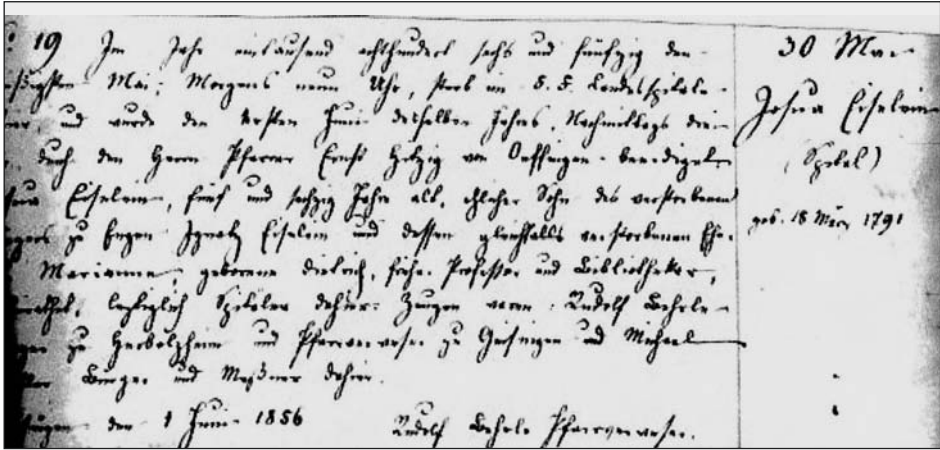 19 Im Jahr eintausend achthundert sechs und fünfzig den
dreißigsten Mai, Morgens neun Uhr, starb im F. F. Landesspitale
und wurde den ersten Juni desselben Jahres, Nachmittags drei
durch den Herrn Pfarrer Ernst von Oeffingen beerdiget
Eiselein, fünf und sechzig Jahre alt, ehlicher Sohn des verstorbenen
zu Engen Ignatz Eiselein und dessen gleichfalls verstorbenen Ehe-
Marianne, geborene Dietrich, früher Professor und Bibliothekar,
Spitäler dahier. Zeugen waren: Rudolf Behrle
zu Herbolzheim und Pfarrverweser zu Geisingen und Michael
Bürger und Meßner dahier.
den 1 Juni 1856 Rudolf Behrle Pfarrverweser.
30 Mai
Josua Eiselein
(Spital)
geb. 18 März 1791